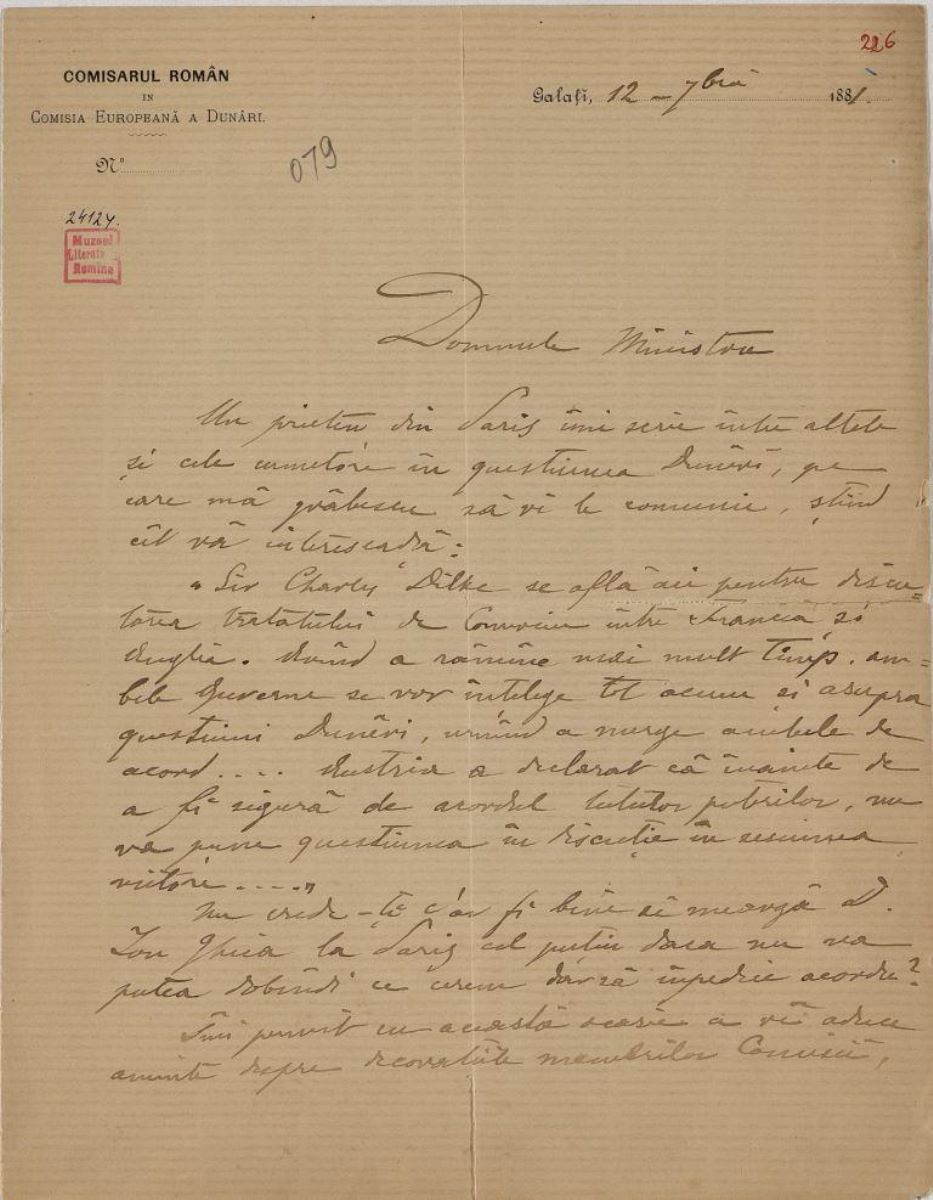 226
COMISARUL ROMÂN
IN
COMISIA EUROPEANĂ A DUNĂRI.
Galați, 12 – 7bră 1881.
Nº
079
24124.
Muzeul
Literatu
Romîne
Domnule Ministru
Un prieten din Paris îmi scrie între altele
și cele urmetóre în questiunea Dunărĭ, pe
care mă grăbescu să vi le comunic, știind
cît vă interesează:
"Sir Charles Dilke se află aci pentru discu=
tarea tratatului de Comerciu între Francia și
Englia. Avînd a rămîne mai mult timp, am=
bele Guverne se vor înțelege tot acum și asupra
questiunii Dunărĭ, urmînd a merge ambele de
acord.... Austria a declarat că înainte de
a fi sigură de acordul tutulor puterilor, nu
va pune questiunea în discuție în sesiunea
viitóre....."
Nu crede-ți c'ar fi bine să meargă D.
Ion Ghica la Paris cel puțin daca nu va
putea dobîndi ce cerem dar să împedice acordu?
Îmi permit cu această ocasie a vĕ aduce
aminte despre decorațiile membrilor Comisii,